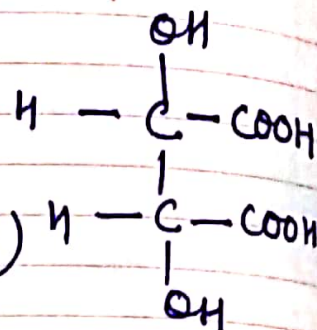 OH
H - C - COOH
) H - C - COOH
OH